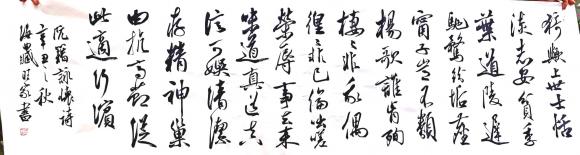 猗歟上世士恬
淡志安貧季
葉道陵遲
馳騖紛垢塵
甯子豈不類
楊歌誰肯殉
棲〻非我偶
徨〻非己倫咄嗟
榮辱事去來
味道真道真
信可娛清潔
存精神巢
由抗高節從
此適河濱
阮籍詠懷詩
辛丑之秋
書